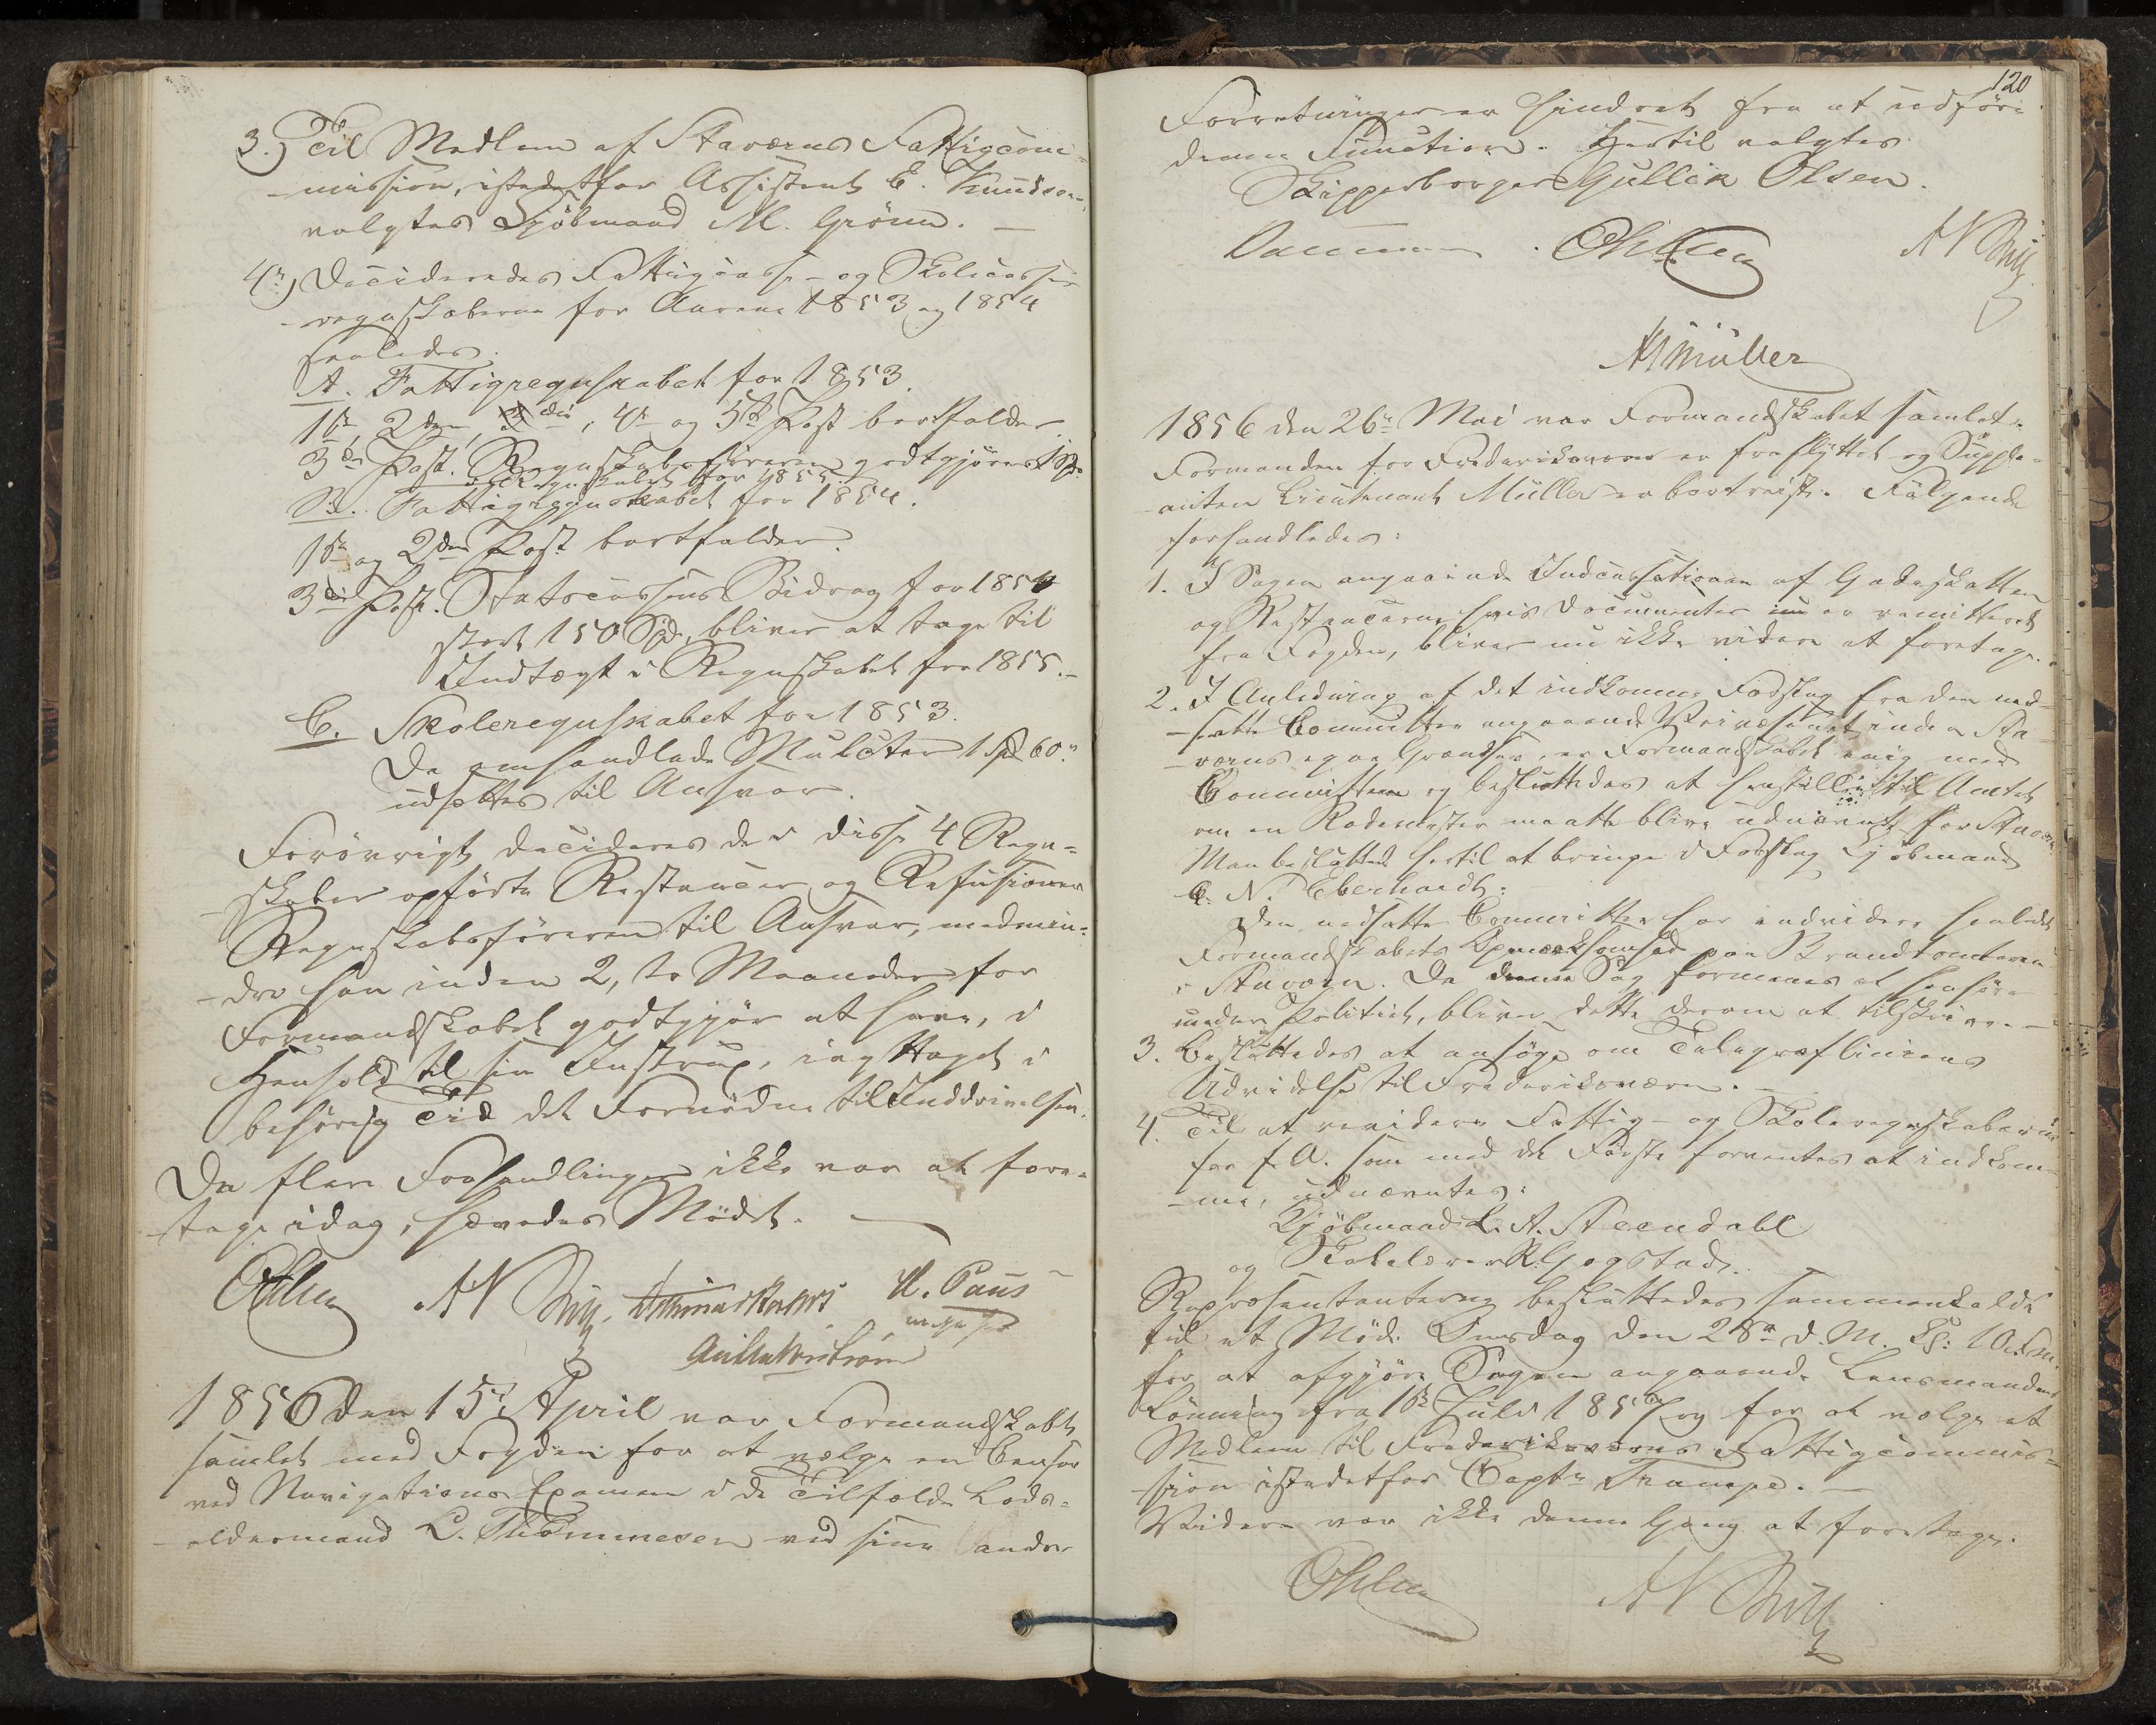 3.) Til Medlem af Staværns Fattigcom-
-mission, istedetfor Assistent E. Knudsen
valgtes Kjöbmand M. Grönn. —
4.) Decideredes Fattigcasse- og Skolecasse-
-regnskaberne for Aarene 1853 og 1854
saaledes.
A. Fattigregnskabet for 1853.
1ste, 2den, 4de og 5te Post bortfalder.
3die Post. Regnskabsføreren godtgjøres 1 Spd.
i Regnskabet for 1855.
B. Fattigregnskabet for 1854.
1ste og 2den Post bortfalder.
3die Post. Statscassens Bidrag for 1854
stort 150 Spd. bliver at tage til
Indtægt i Regnskabet for 1855.-
C. Skoleregnskabet for 1853.
De omhandlede Mulcter 1 Spd 60 s
udsættes til Ansvar.
Forövrigt decideres de i disse 4 Regn-
-skaber opførte Restancer og Refusioner
Regnskabsføreren til Ansvar, medmin-
-dre han inden 2, to Maaneder for
Formandskabet godtgjør at have, i
Henhold til sin Instrux, iagttaget i
behørig Tid det Fornødne til Inddrivelsen.
Da flere Forhandlinger ikke var at fore-
-tage idag, hævedes Mödet. —
H. Paus
1856 den 15de April var Formandskabet
samlet med Fogden for at vælge en Censor
ved Navigations Examen i de Tilfælde Lods-
-oldermand L. Thommesen ved sine andre
120
Forretninger er hindret fra at udföre
denne Function. Hertil valgtes
Skipperborger Gullik Olsen.
Müller
1856 den 26de Mai var Formandskabet samlet.
Formanden for Frederiksværn er fraflyttet og Supple-
-anten Lieutenant Müller er bortreist. Fölgende
forhandledes:
1. I Sagen angaaende Indcassationen af Gadeskatten
og Restancerne, hvis Documenter nu er remitteret
fra Fogden, bliver nu ikke videre at foretage.
2. I Anledning af det indkomne Forslag fra den ned-
-satte Committee angaaende Veivæsenet inden Sta-
-værns egne Grændser, er Formandskabet enig med
Committeen og besluttedes at henstille til Amtet
om en Rodemester maatte blive udnævnt for Staværn.
Man besluttet hertil at bringe i Forslag Kjöbmand
C. N. Eberhardt.
Den nedsatte Committee har endvidere henledet
Formandskabets Opmærksomhed paa Brandtomterne
i Staværn. Da denne Sag formenes at henhøre
under Politiet, bliver dette derom at tilskrive. —
3. Besluttedes at ansöge om Telegrafliniens
Udvidelse til Frederiksværn. —
4. Til at revidere Fattig- og Skoleregnskaberne
for f. A. som med det Förste forventes at indkom-
-me, udnævntes:
Kjöbmand L. A. Steendahl
og Skolelærer R. Gogstad.
Repræsentanterne besluttedes sammenkaldt
til et Möde Onsdag den 28de d. M. Kl: 10 Fm.
for at afgjøre Sagen angaaende Lensmandens
Lönning fra 1ste Juli 185 og for at vælge et
Medlem til Frederiksværns Fattigcommis-
-sion istedetfor Captn Trampe. —
Videre var ikke denne Gang at foretage.